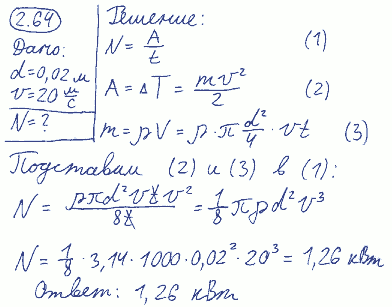 2.64
Дано:
d=0,02 м
v=20 м/с
N=?
Решение:
N = A/t (1)
A = ΔT = mv²/2 (2)
m = ρV = ρ·π d²/4 · vt (3)
Подставим (2) и (3) в (1):
N = ρπd²vtv²/8t = 1/8 πρd²v³
N = 1/8 · 3,14 · 1000 · 0,02² · 20³ = 1,26 кВт
Ответ: 1,26 кВт